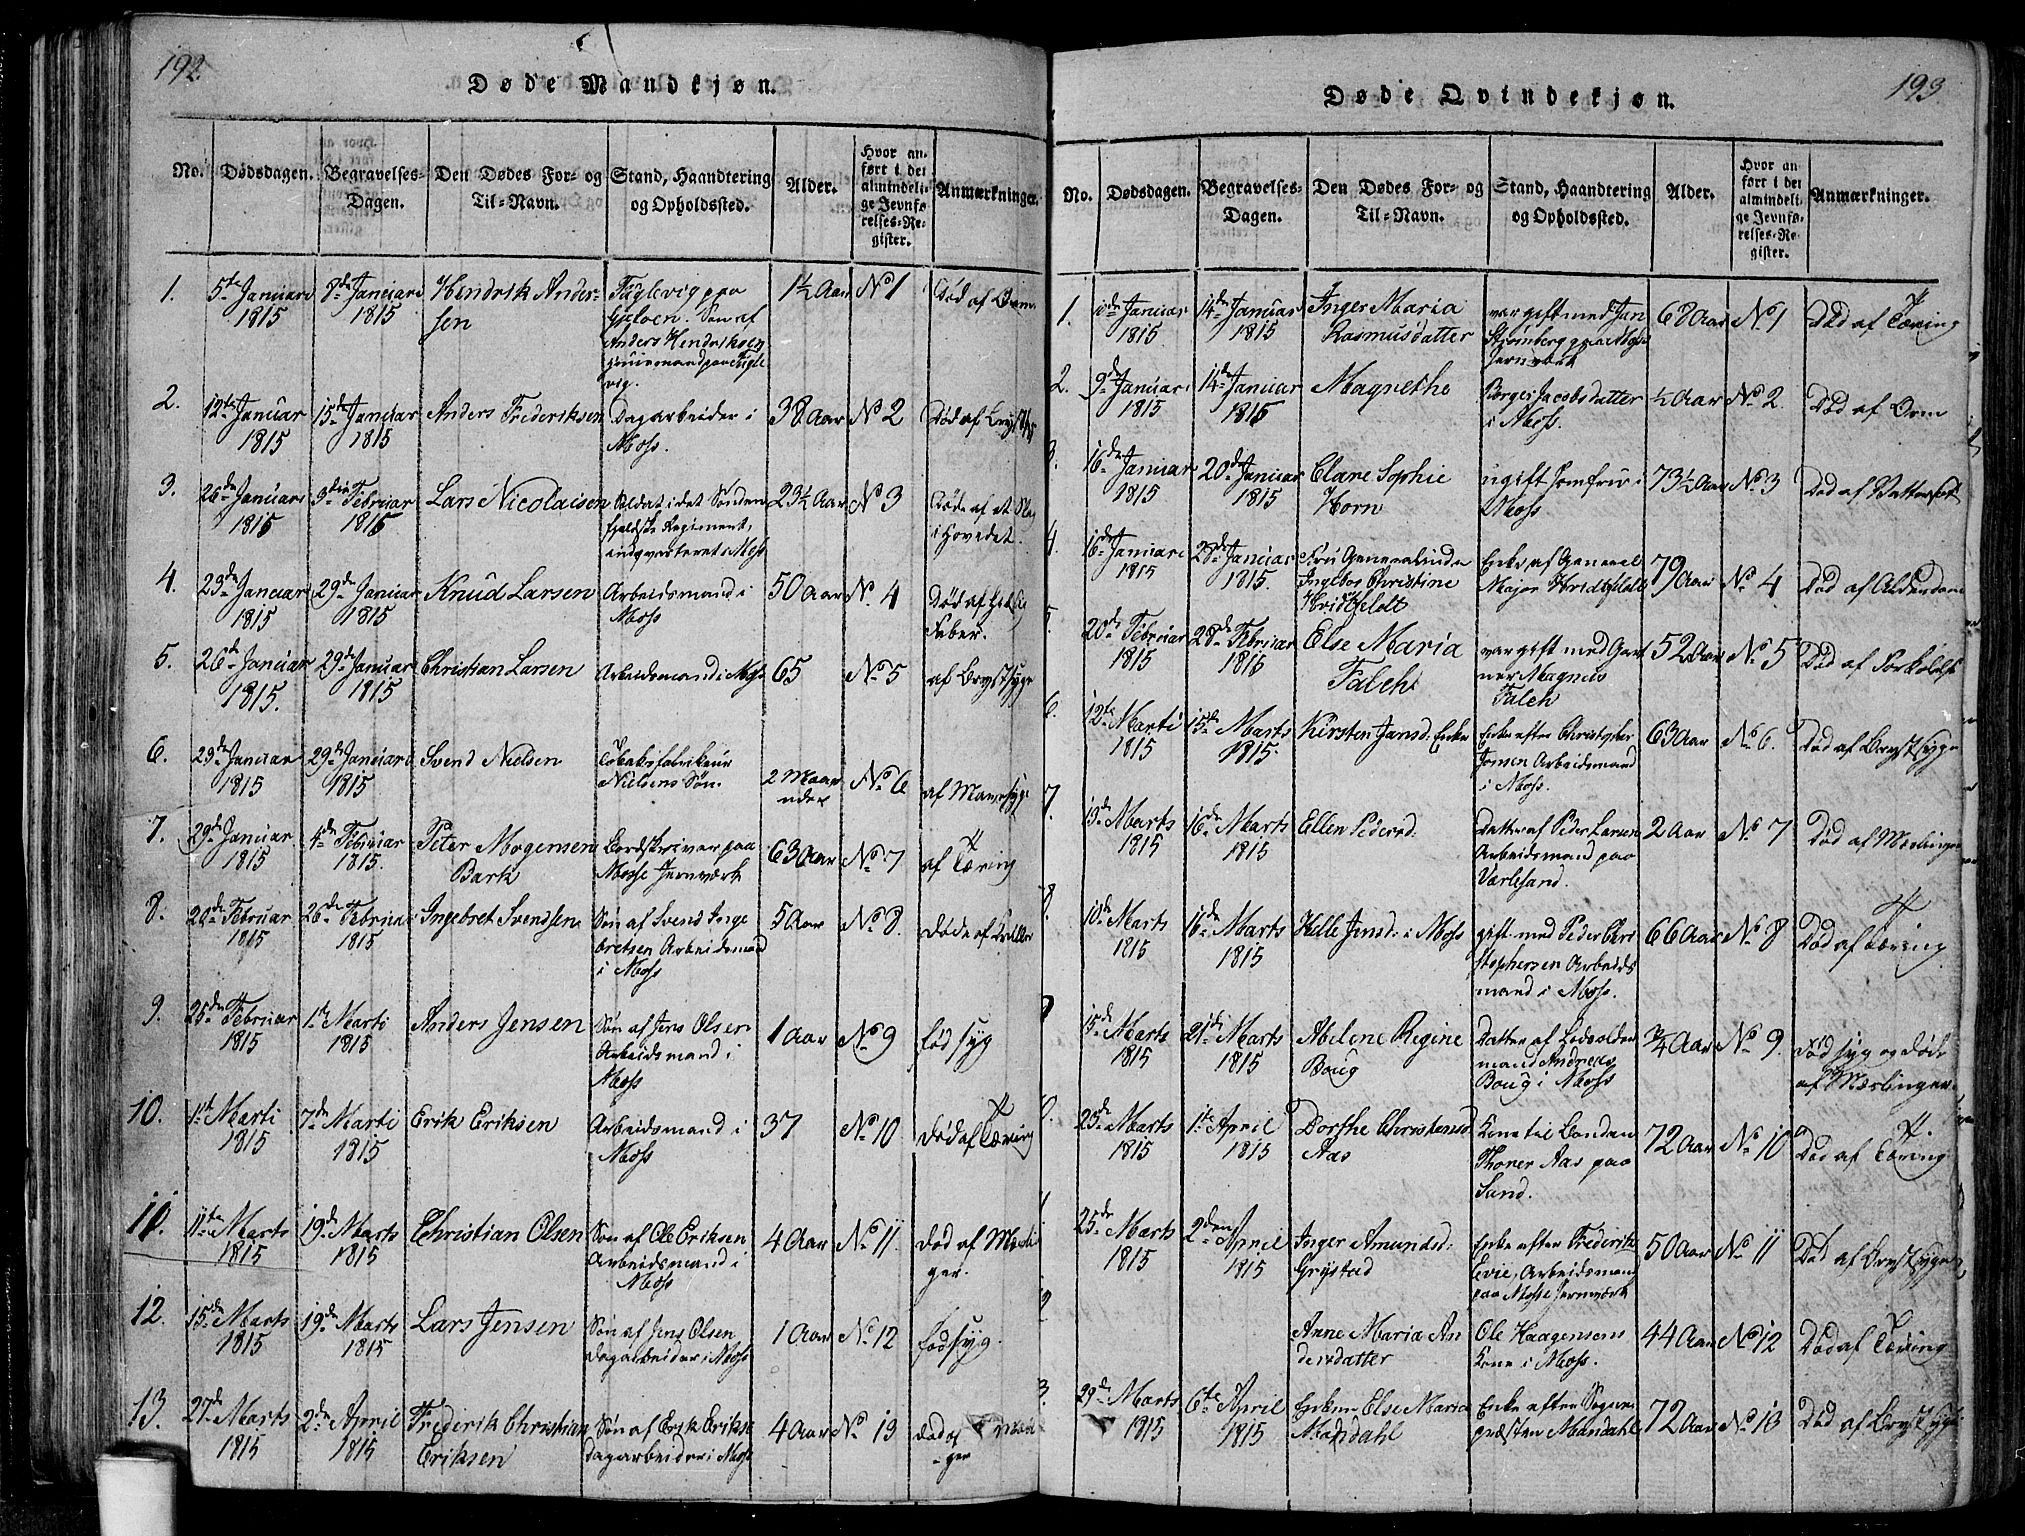 192.
Døde Mandkjøn.
No. Dødsdagen. Begravelses-Dagen. Den Dødes For- og Til-Navn. Stand, Haandtering og Opholdssted. Alder. Hvor anført i det almindelige Jevnførelses-Register. Anmærkninger.
1. 5te Januari 1815 8de Januari 1815 Hendrik Andersen Fuglevig paa Gjeløen. Søn af Anders Hendriksen paa Fuglevig. 1½ Aar No 1 Død af Orm
2. 12te Januar 1815 15de Januar 1815 Anders Frederiksen Dagarbeider i Moss. 38 Aar No 2 Død af
3. 26de Januari 1815 3die Februar 1815 Lars Nicolaisen Soldat i det Søndenfjeldske Regiment, indqvarteret i Moss 23½ Aar No 3 Døde af et i Hovedet.
4. 23de Januar 1815 29de Januar 1815 Knud Larsen Arbeidsmand i Moss 50 Aar No. 4 Død af Feber.
5. 26de Januar 1815. 29de Januar 1815 Christian Larsen Arbeidsmand i Moss 65 No 5 af Brystsyge
6. 23de Januar 1815 29de Januari 1815 Svend Nielsen Tobaksfabrikeur Nielsens Søn. 2 Maaneder No 6 af Mavesyge
7. 29de Januar 1815 4de Februar 1815. Peter Mogensen Bark Bordskriver paa Mosse Jernværk 63 Aar No 7 af Tæring
8. 20de Februar 1815 26de Februar 1815 Ingebret Svendsen Søn af Svend Ingebretsen Arbeidsmand i Moss 5 Aar No 8. Døde af
9. 25de Februar 1815 1te Marti 1815 Anders Jensen Søn af Jens Olsen Arbeidsmand i Moss 1 Aar No 9 fød syg
10. 1te Marti 1815 7de Marti 1815 Erik Eriksen Arbeidsmand i Moss 37 No 10 Død af Tæring
11. 11te Marts 1815 19de Marts 1815 Christian Olsen Søn af Ole Eriksen Arbeidsmand i Moss 4 Aar No 11 Død af
12. 15de Marts 1815 19de Marts 1815 Lars Jensen Søn af Jens Olsen Dagarbeider i Moss 1 Aar No 12 fødsyg.
13. 27de Marts 1815 2de April 1815 Frederik Christian Eriksen Søn af Erik Eriksen Dagarbeider i Moss 4 Aar No 13 Død af
193.
Døde Qvindekjøn.
No. Dødsdagen. Begravelses-Dagen. Den Dødes For- og Til-Navn. Stand, Haandtering og Opholdssted. Alder. Hvor anført i det almindelige Jevnførelses-Register. Anmærkninger.
1. Januar 1815 14de Januar 1815 Inger Maria Rasmusdatter var gift med Jan Strømberg paa Moss Jernværk 68 Aar No 1 Død af Tæring
2. 9de Januari 1815 14de Januar 1815 Magnethe Børges Jacobsdatter i Moss. ½ Aar No 2. Død af Orm
3. 16de Januar 1815 20de Januar 1815 Clane Sophie Horn ugift Jomfrue i Moss 73½ Aar No 3 Død af Vattersot
4. 16de Januari 1815 28de Januar 1815. Frue Generalinde Ingebor Christine Hvidtfeldt Enke af General Major Hvidtfeldt 79 Aar No 4 Død af Alderdom
5. 20de Februar 1815 28de Februar 1815 Else Maria Falch var gift med Gartner Magnus Falch 52 Aar No 5 Død af
6. 12te Marti 1815 15de Marts 1815. Kirsten Jansd: Enke Enke efter Christopher Jonsen Arbeidsmand i Moss. 63 Aar No 6. Død af Brystsyge
7. 13de Marts 1815 16de Marts 1815 Ellen Pedersd. Datter af Peder Larsen Arbeidsmand paa Varlesand. 2 Aar No 7 Død af Mæslinger
8. 10de Marts 1815 16de Marts 1815 Helle Jensd: i Moss gift med Peder Christophersen Arbeidsmand i Moss. 66 Aar No 8 Død af Tæring
9 15de Marts 1815 21de Marts 1815 Abelene Regine Boug Datter af mand Andreas Boug i Moss ¾ Aar No 9. Fød syg og døde af Mæslinger
0. 25de Marts 1815 1te April 1815 Dorthe Christensd Aas Kone til Bonden Thoner Aas paa Sand. 72 Aar No 10 Død af Tæring
1 25de Marts 1815 2den April 1815 Inger Amundsd: Grystad Enke efter Frederik Evie, Arbeidsmand paa Mosse Jernværk 50 Aar No 11 Død af Brystsyge
2 Anne Maria Andersdatter Ole Haagensens Kone i Moss. 44 Aar No 12 Død af Tæring
3 29de Marts 1815 6te April 1815 Enken Else Maria Mandahl Enke efter Sognepræsten Mandahl 72 Aar No 13 Død af Brystsyge